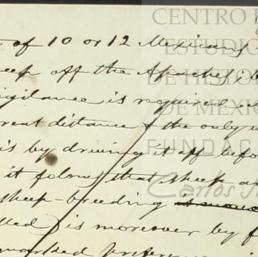 of 10 or 12 Mexicans
off the Apaches
vigilance is required
distance & the only
is by driving it off befo
it follows that sheep
sheep-breeding
is moreover by f
worked
CENTRO
ESTUDIO
DE HISTO
DE MEXICO
FUNDAC
Carlos S